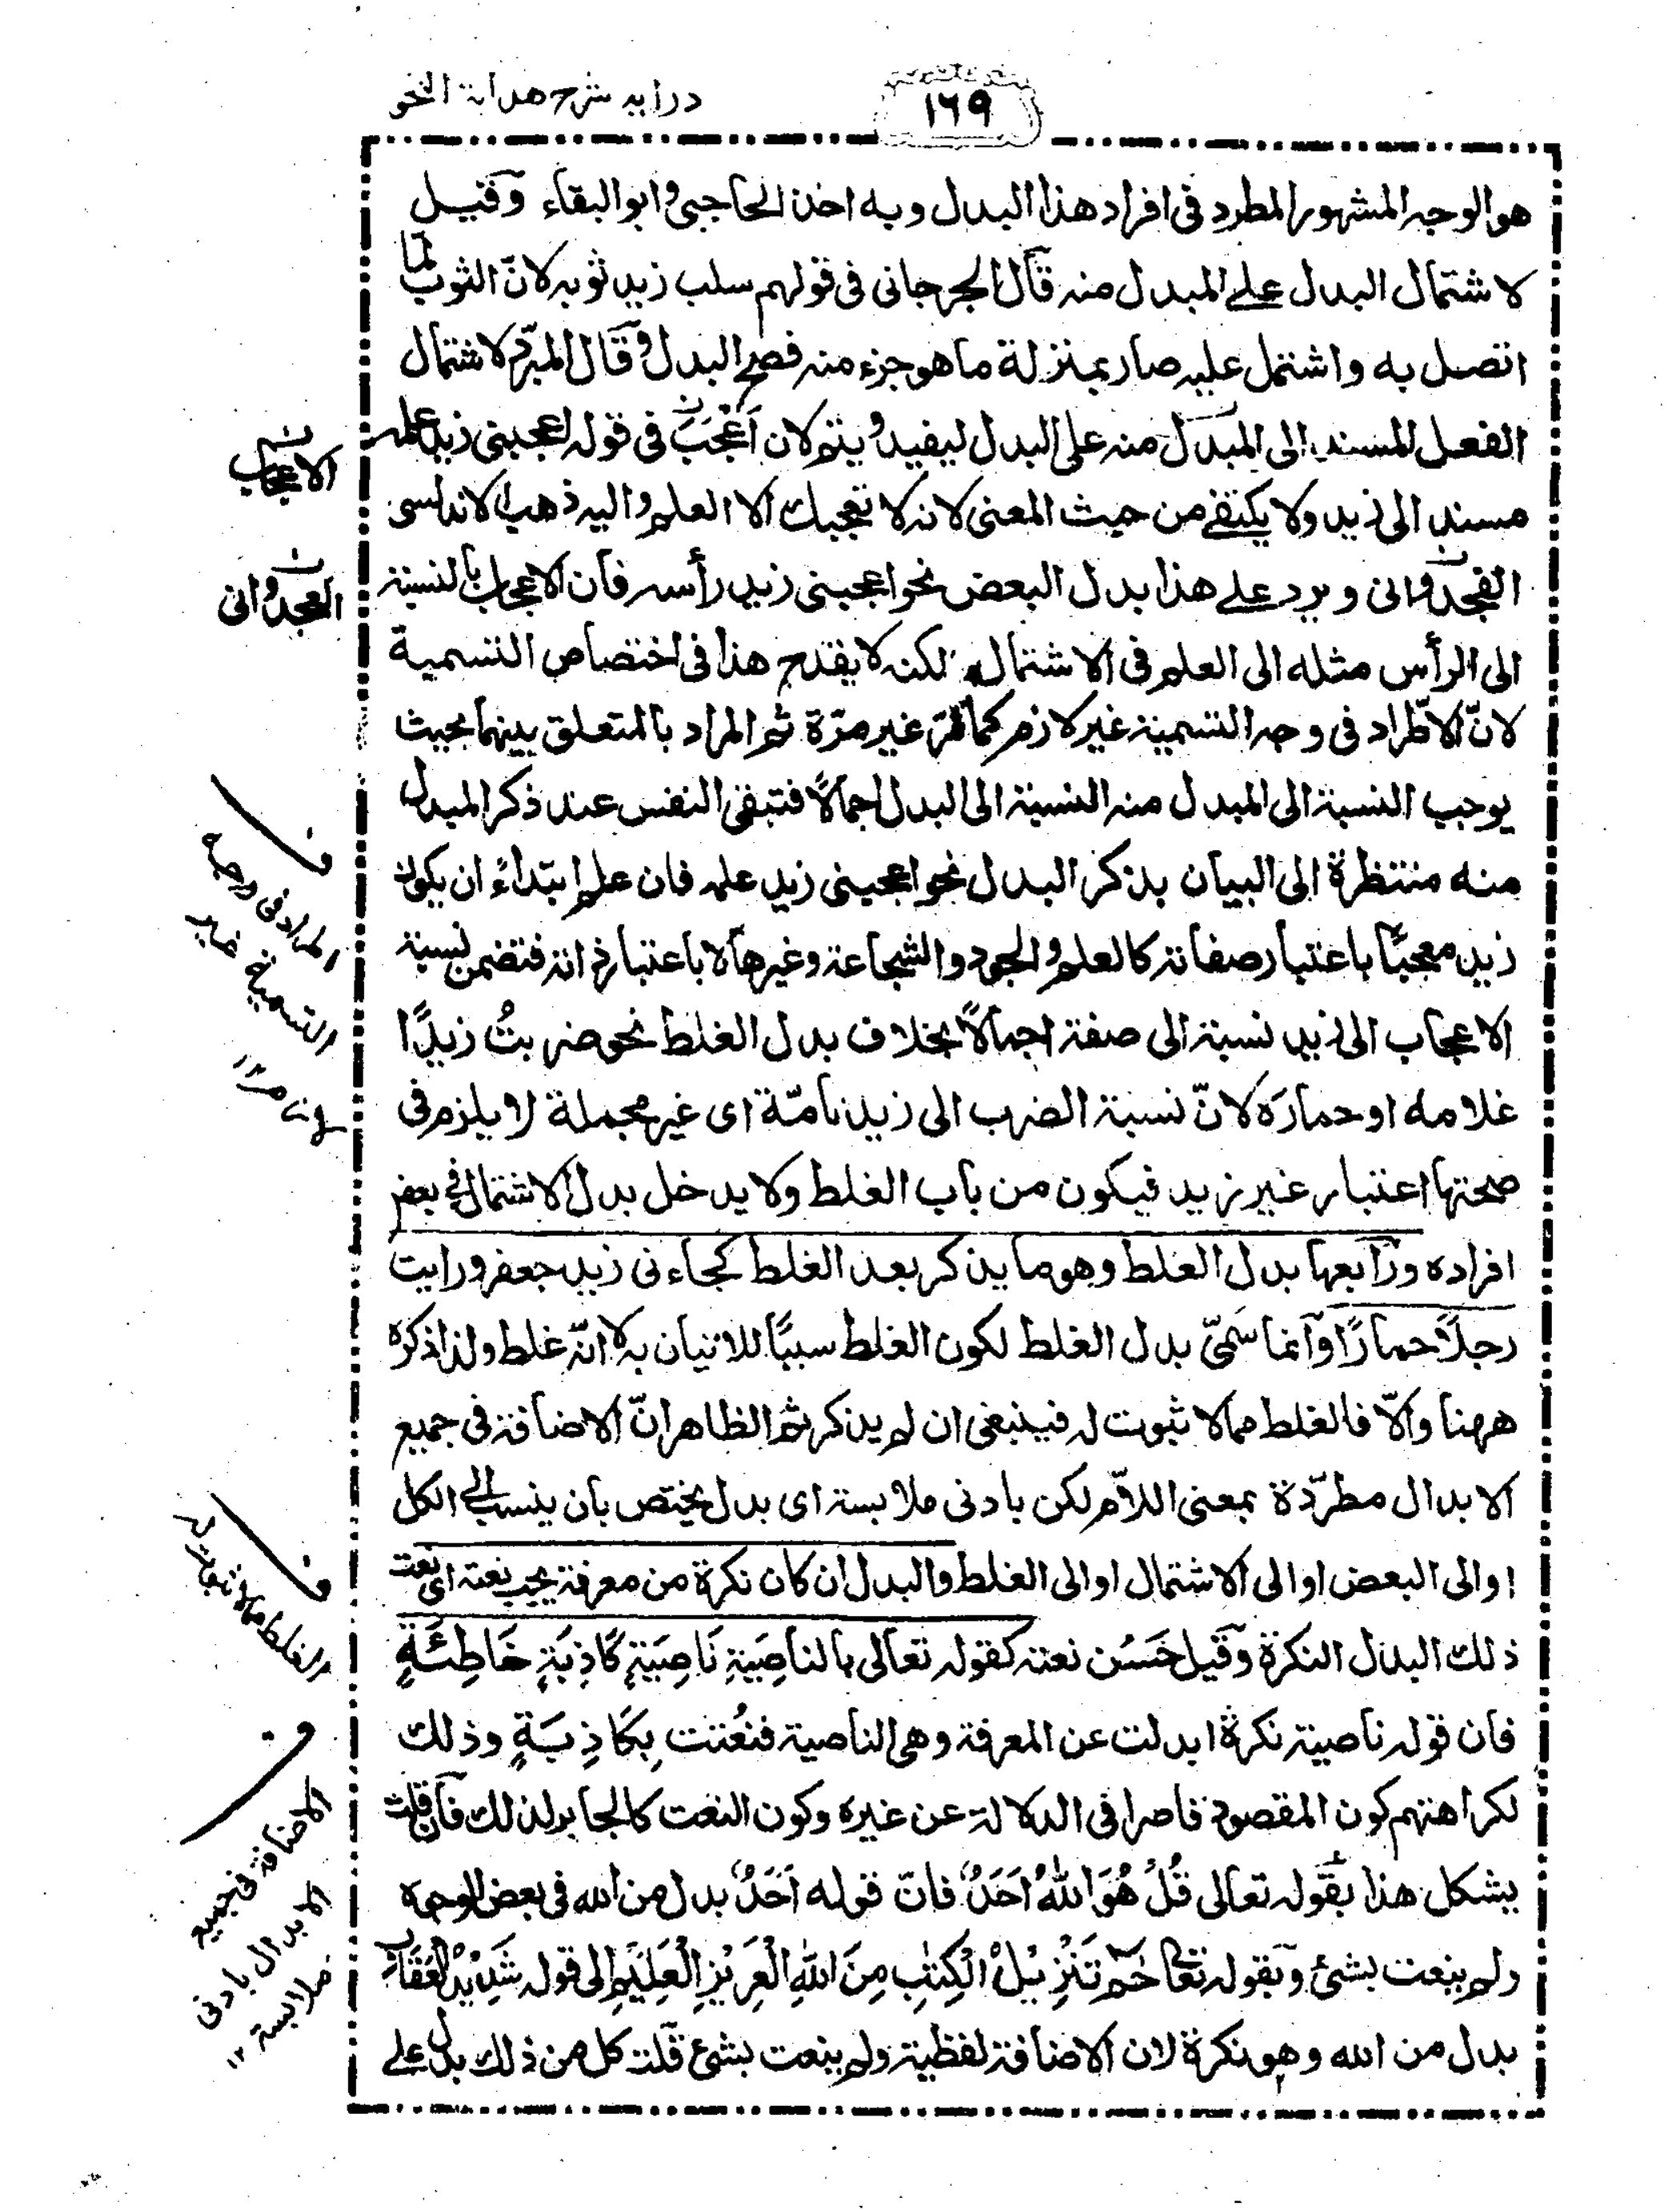 درايه شرح هداية النحو
١٦٩
هو الوجه المشهور المطرد فى افراد هذا البدل وبه اخذ الحاجبى وابو البقاء وقيل
لاشتمال البدل على المبدل منه قال الجرجانى فى قولهم سلب زيد ثوبه لانّ الثوب لما
اتصل به واشتمل عليه صار بمنزلة ما هو جزء منه فصح البدل وقال المبرّد لاشتمال
الفعل المسند الى المبدل منه على البدل ليفيد ويتم لان اَعْجَبَ فى قوله اعجبنى زيد علمه
مسند الى زيد ولا يكتفى من حيث المعنى لانه لا تعجبك الا العلم واليه ذهب الاندلسى
الفجدوانى ويرد على هذا بدل البعض نحو اعجبنى زيد رأسه فان الاعجاب بالنسبة
الى الرأس مثله الى العلم فى الاشتمال لكنه لا يقدح هذا فى اختصاص التسمية
لانّ الاطّراد فى وجه التسمية غير لازم كما مرّ غير مرّة ثم المراد بالتعلق بينهما بحيث
يوجب النسبة الى المبدل منه النسبة الى البدل اجمالًا فتبقى النفس عند ذكر المبدل
منه منتظرة الى البيان بذكر البدل نحو اعجبنى زيد علمه فان علم ابتداءً ان يكون
زيد معجبًا باعتبار صفاته كالعلم والجود والشجاعة وغيرها لا باعتبار ذاته فتضمن نسبة
الاعجاب الى زيد نسبة الى صفة اجمالًا بخلاف بدل الغلط نحو ضربتُ زيدًا
غلامه او حمارَه لانّ نسبة الضرب الى زيد تامّة اى غير مجملة لا يلزم فى
صحتها اعتبار غير زيد فيكون من باب الغلط ولا يدخل بدل الاشتمال فى بعض
افراده ورابعها بدل الغلط وهو ما يذكر بعد الغلط كجاءنى زيد جعفر ورايت
رجلًا حمارًا وانما سمّى بدل الغلط لكون الغلط سببًا للاتيان به لا انّه غلط ولذا ذكره
ههنا والّا فالغلط مما لا ثبوت له فينبغى ان لم يذكر ثم الظاهر انّ الاضافة فى جميع
الابدال مطرّدة بمعنى اللّام لكن بادنى ملابسة اى بدل يختص بان ينسب الى الكل
او الى البعض او الى الاشتمال او الى الغلط والبدل ان كان نكرة من معرفة يجب نعته اى نعت
ذلك البدل النكرة وقيل حَسُن نعته كقوله تعالى بالناصِيَةِ نَاصِيَةٍ كَاذِبَةٍ خَاطِئَةٍ
فان قوله ناصية نكرة ابدلت عن المعرفة وهى الناصية فنُعتت بِكَاذِبَةٍ وذلك
لكراهتهم كون المقصود قاصرا فى الدلالة عن غيره وكون النعت كالجابر لذلك فان قلت
يشكل هذا بقوله تعالى قُلْ هُوَ اللّٰهُ اَحَدٌ فانّ قوله اَحَدٌ بدل من الله فى بعض الوجوه
ولم ينعت بشئ وبقوله تعالى حٰمٓ تَنْزِيْلُ الْكِتٰبِ مِنَ اللّٰهِ الْعَزِيْزِ الْعَلِيْمِ الى قوله شَدِيْدِ الْعِقَابِ
بدل من الله وهو نكرة لان الاضافة لفظية ولم ينعت بشئ قلت كل من ذلك بدل على
الاعجاب
الغجدوانى
ف
المراد فى وجه
التسمية غير
لازم ١٢
ف
الغلط مما لا ثبوت له
ف
الاضافة فى جميع
الابدال بادنى
ملابسة ١٢